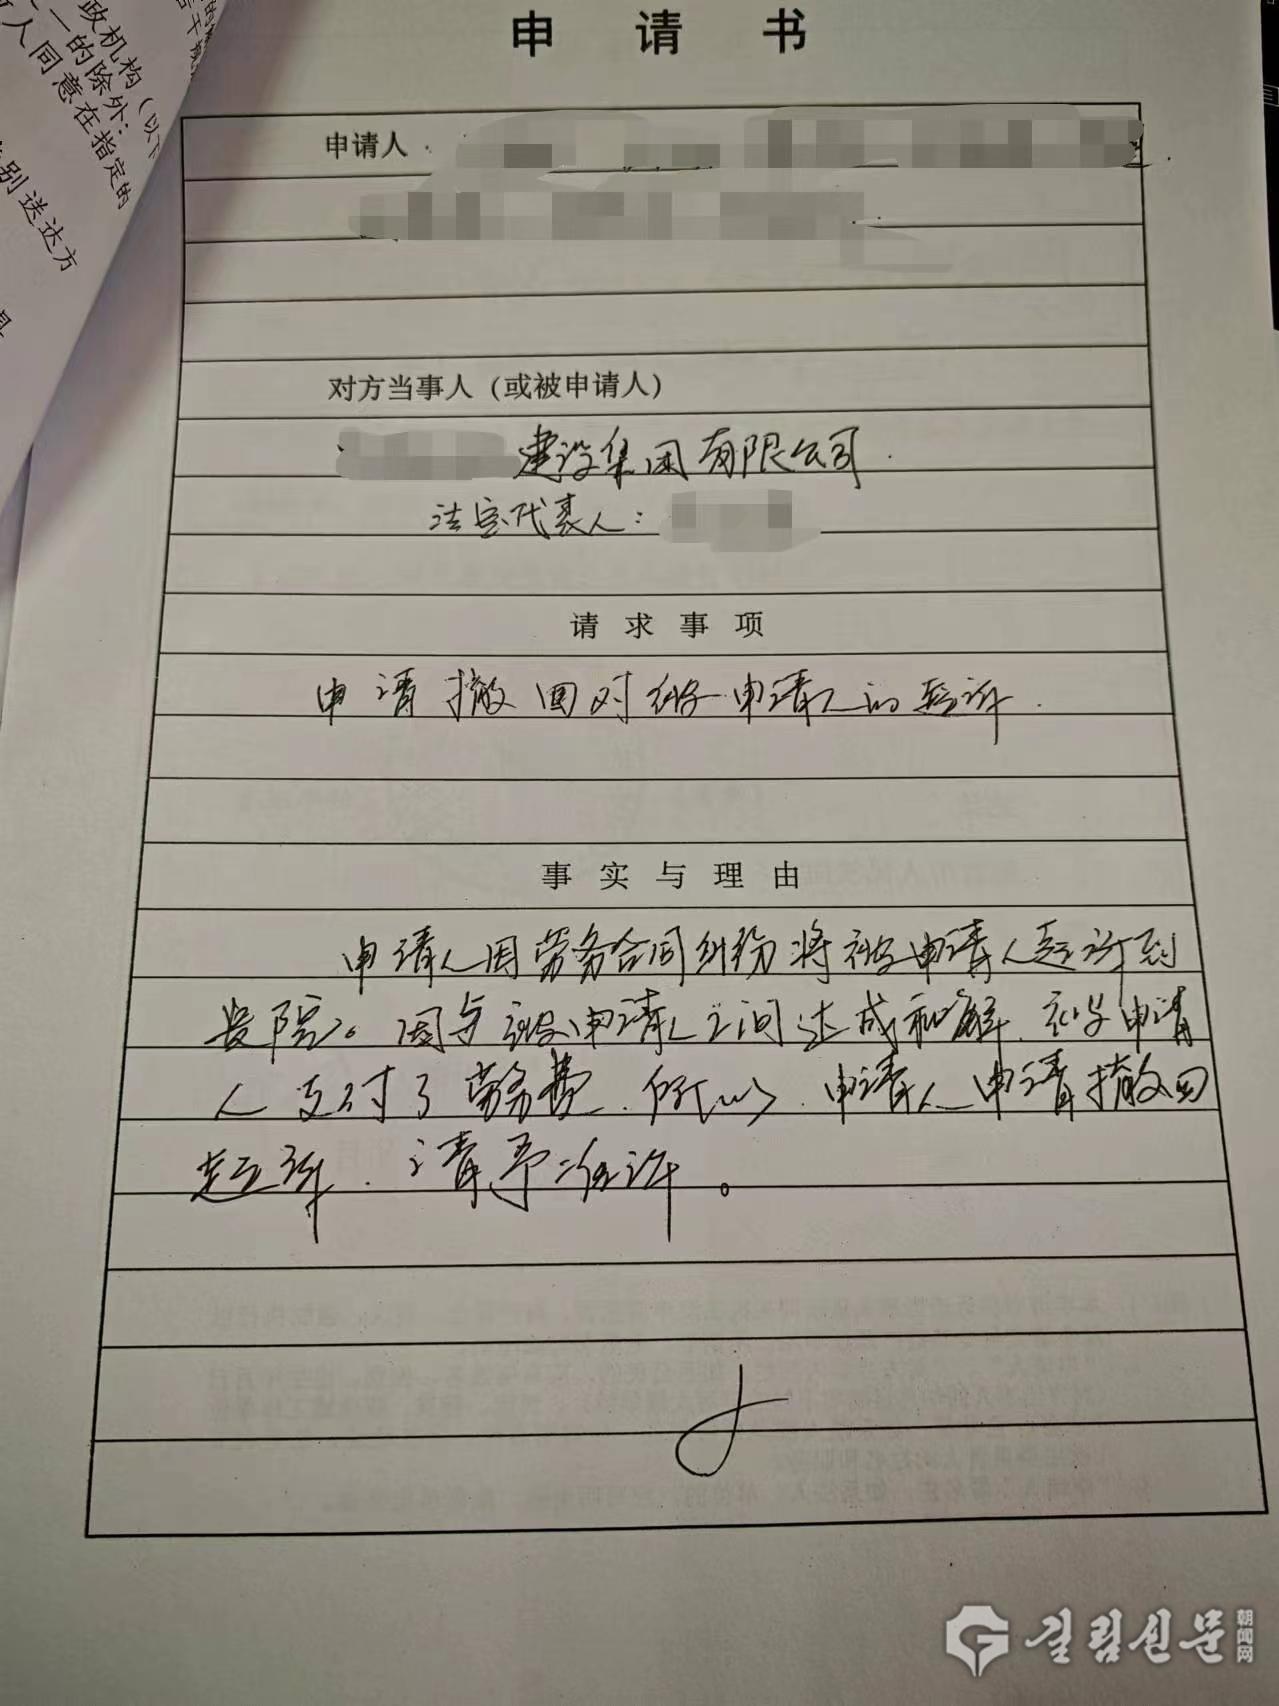 政机构(以下
一的除外:
人同意在指定的
别送达方
申请书
申请人
对方当事人(或被申请人)
建设集团有限公司.
法定代表人:
请求事项
申请撤回对被申请人的起诉.
事实与理由
申请人因劳务合同纠纷将被申请人起诉到
贵院。因与被申请人之间达成和解.被申请
人支付了劳务费.所以.申请人申请撤回
起诉.请予准许。
길림신문
朝闻网